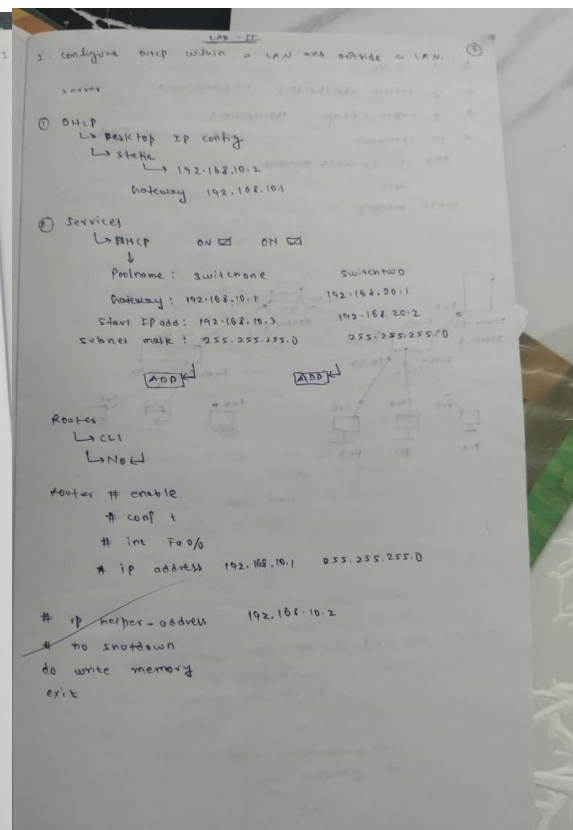 LAB - II
3
1. configure DHCP within a LAN and outside a LAN.
server
① DHCP
↳ Desktop IP config
↳ static
↳ 192.168.10.2
Gateway 192.168.10.1
② Services
↳ DHCP ON ☑ ON ☑
↓
Poolname : switchone switchtwo
Gateway : 192.168.10.1 192.168.20.1
Start IP add : 192.168.10.3 192.168.20.2
subnet mask : 255.255.255.0 255.255.255.0
ADD↵ ADD↵
Router
↳ CLI
↳ No ↵
Router # enable
# conf t
# int Fa0/0
# ip address 192.168.10.1 255.255.255.0
# ip helper-address 192.168.10.2
# no shutdown
do write memory
exit